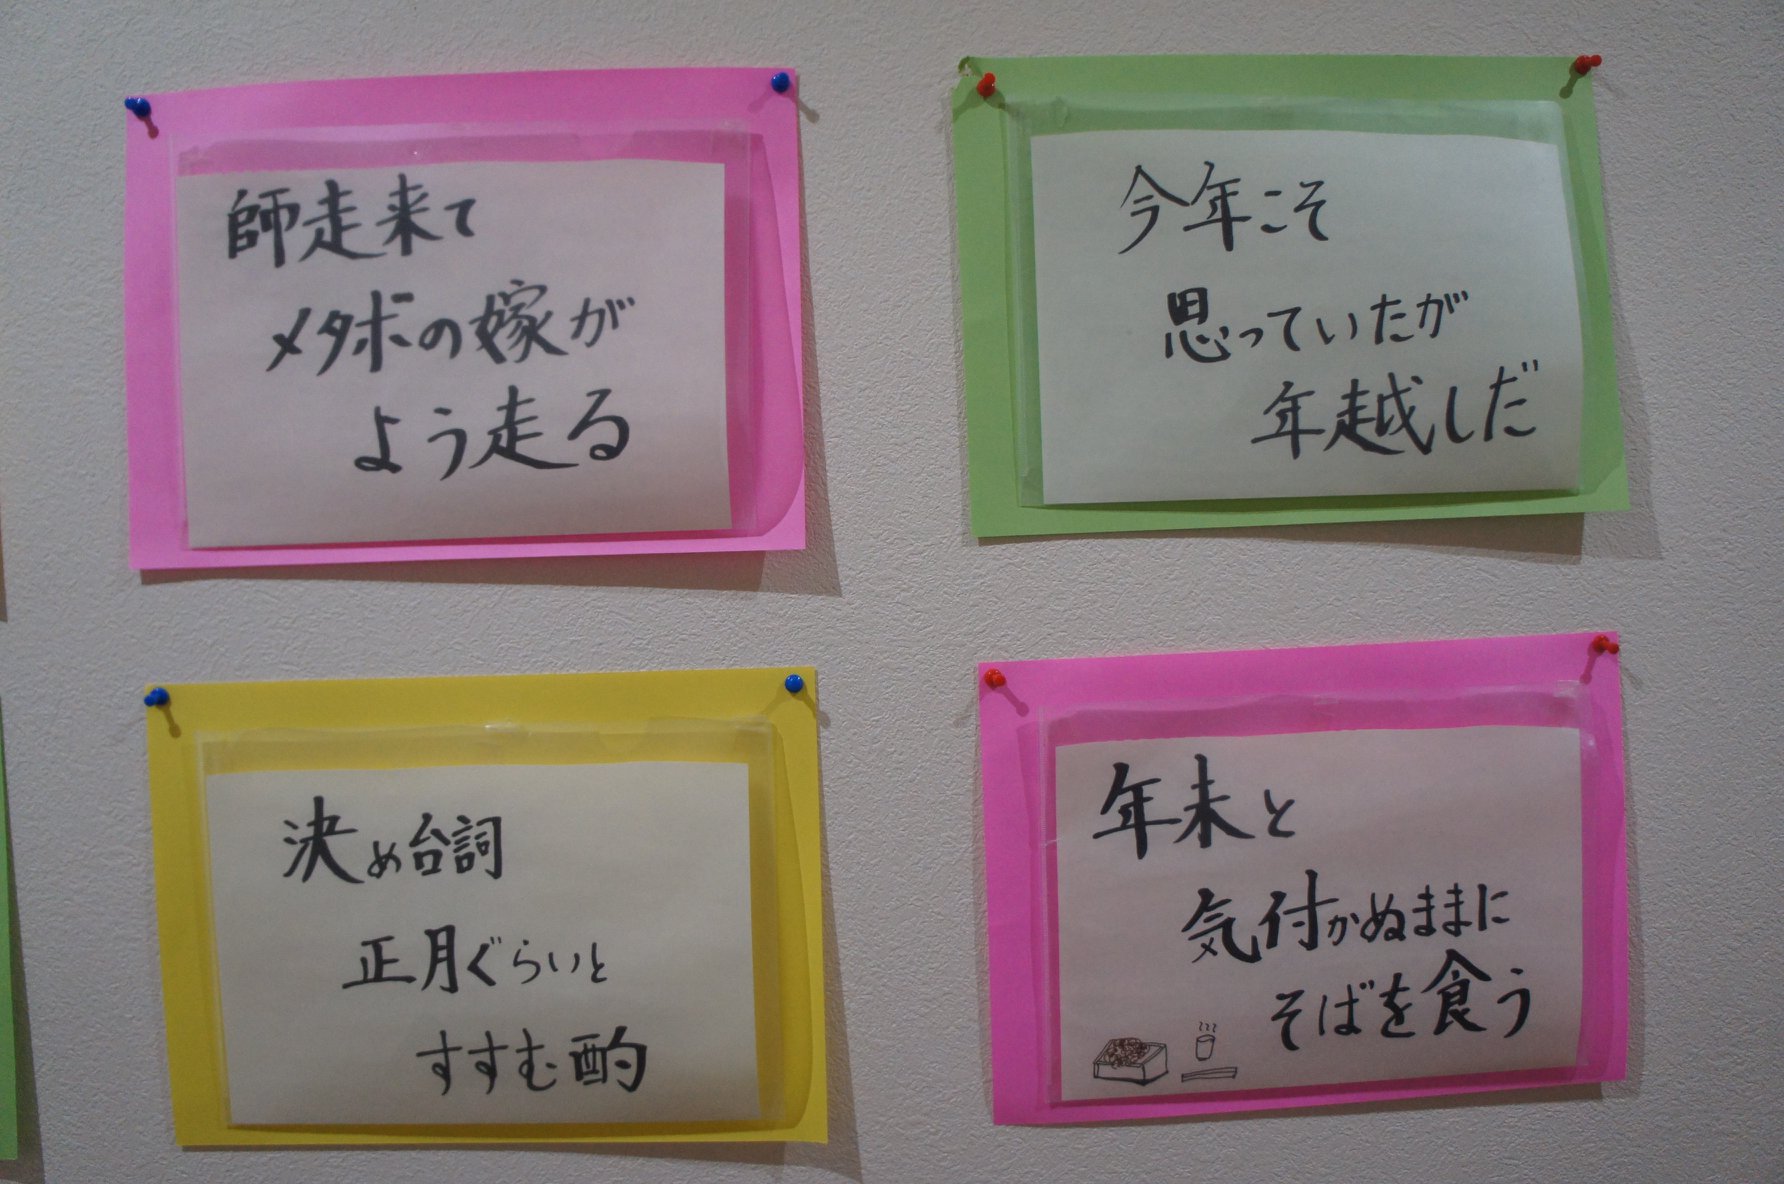 師走来て
メタボの嫁が
よう走る
今年こそ
思っていたが
年越しだ
決め台詞
正月ぐらいと
すすむ酌
年末と
気付かぬままに
そばを食う